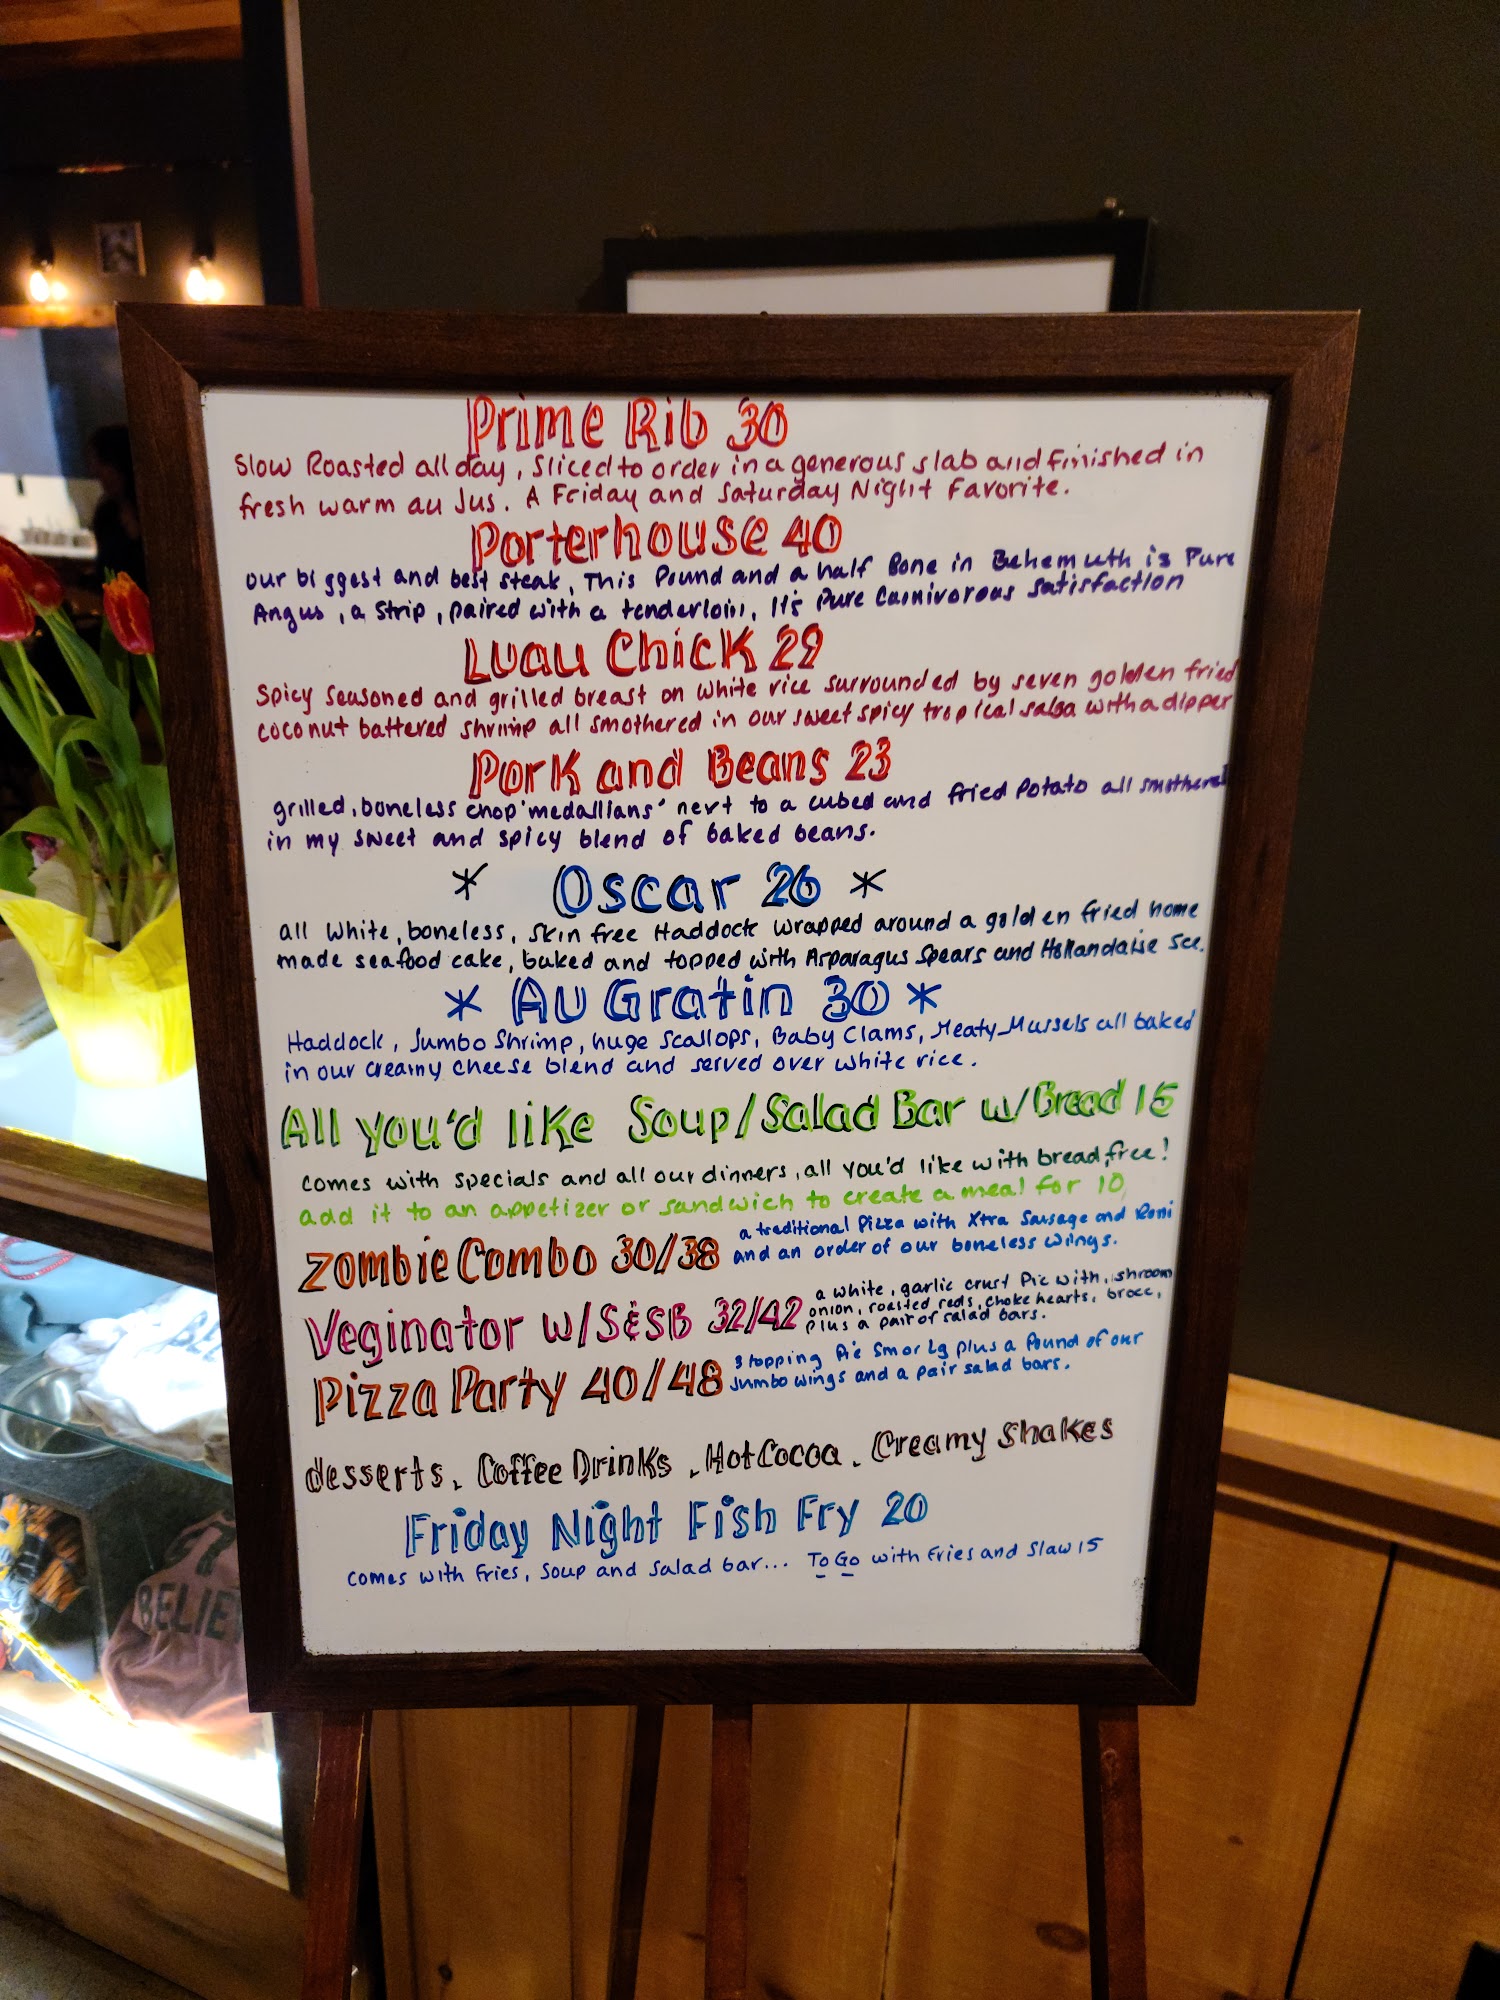 Prime Rib 30
Slow Roasted all day, Sliced to order in a generous slab and finished in
fresh warm au Jus. A Friday and Saturday Night Favorite.
Porterhouse 40
our biggest and best steak, This Pound and a half Bone in Behemuth is Pure
Angus, a Strip, paired with a tenderloin, It's Pure Carnivorous Satisfaction
Luau Chick 29
Spicy seasoned and grilled breast on white rice surrounded by seven golden fried
coconut battered shrimp all smothered in our sweet spicy tropical salsa with a dipper
Pork and Beans 23
grilled, boneless chop 'medallians' next to a cubed and fried Potato all smothered
in my sweet and spicy blend of baked beans.
* Oscar 26 *
all White, boneless, skin free Haddock wrapped around a golden fried home
made seafood cake, baked and topped with Asparagus Spears and Hollandaise Sce.
* Au Gratin 30 *
Haddock, Jumbo Shrimp, huge Scallops, Baby Clams, Meaty Mussels all baked
in our creamy cheese blend and served over white rice.
All you'd like Soup/Salad Bar w/Bread 15
comes with specials and all our dinners, all you'd like with bread, free!
add it to an appetizer or sandwich to create a meal for 10
Zombie Combo 30/38 a traditional Pizza with Xtra Sausage and Roni
and an order of our boneless wings.
Veginator w/S&SB 32/42 a white, garlic crust Pie with, shroom
onion, roasted reds, choke hearts, brocc,
plus a pair of salad bars.
Pizza Party 40/48 3 topping Pie Sm or Lg plus a Pound of our
Jumbo wings and a pair salad bars.
desserts, Coffee Drinks, Hot Cocoa, Creamy Shakes
Friday Night Fish Fry 20
comes with Fries, Soup and Salad bar... To Go with Fries and Slaw 15
BELIEV